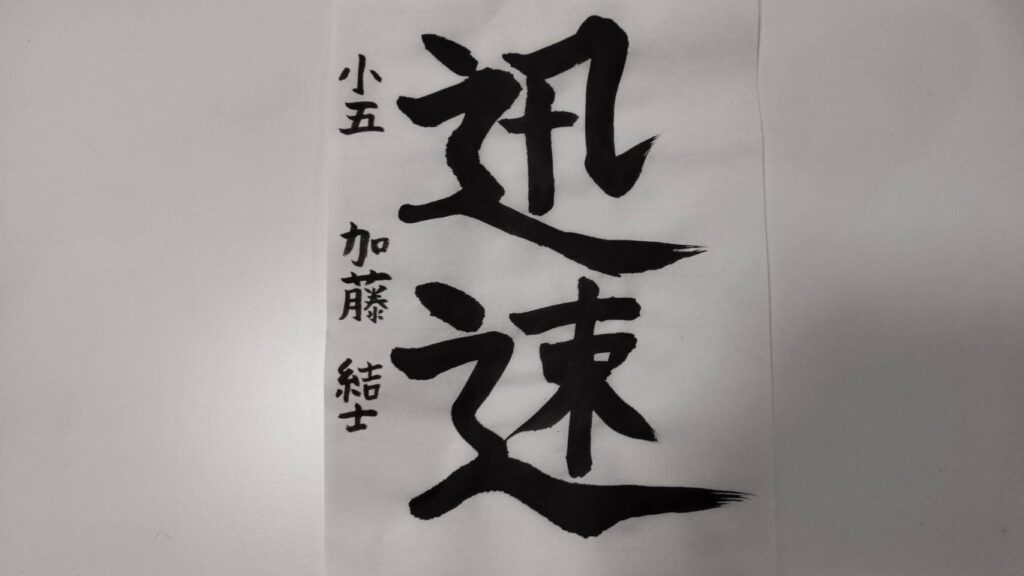 迅速
小五 加藤 結士